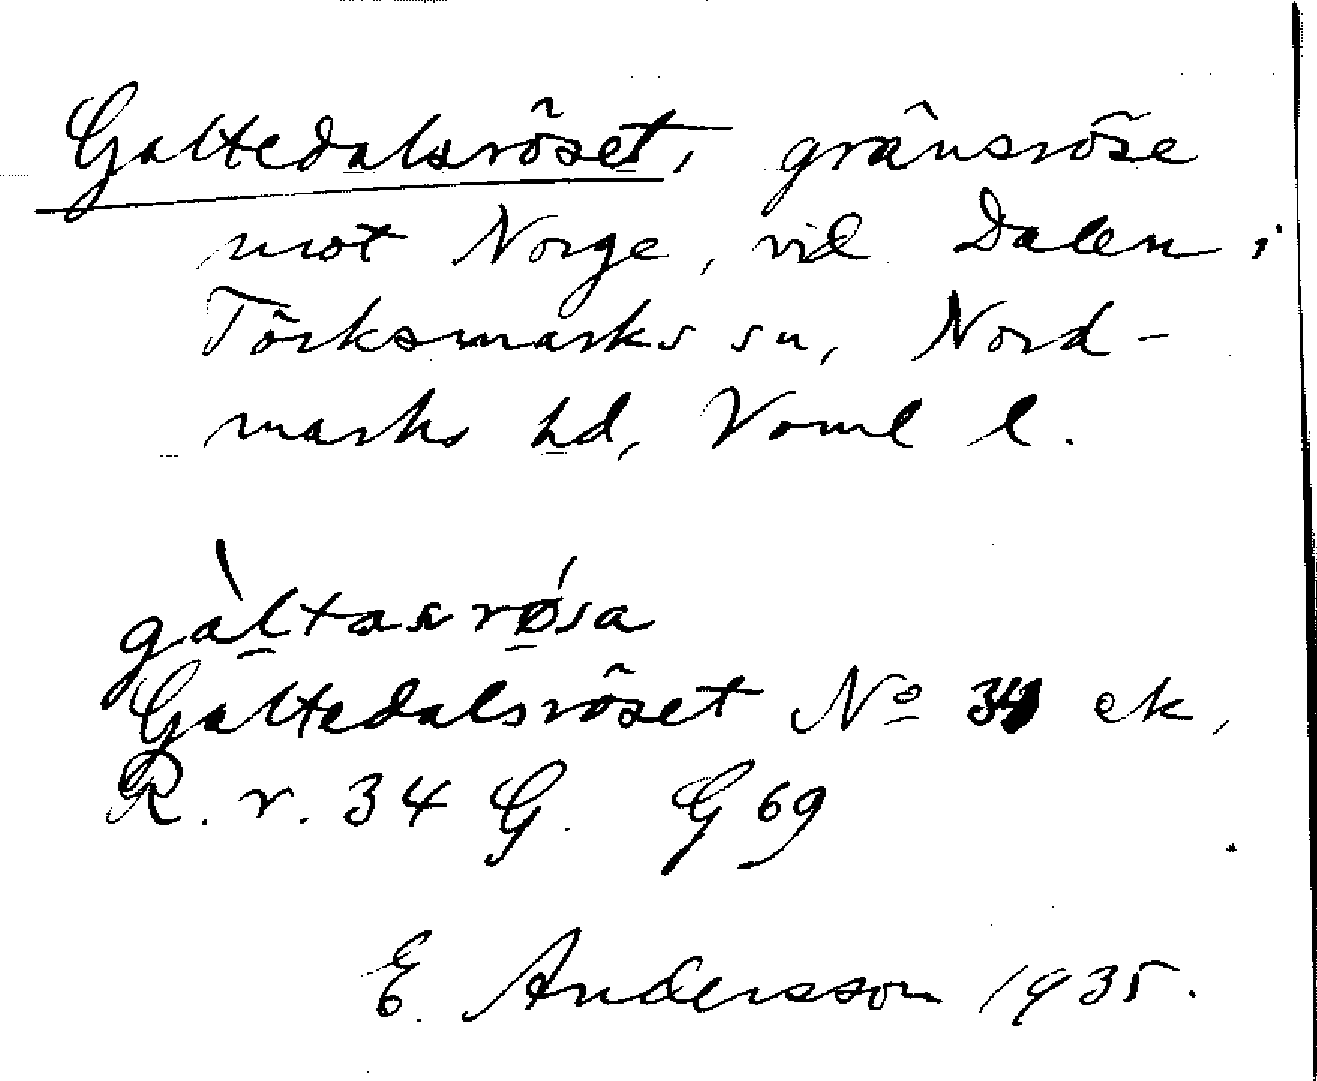 Galtedalsröset, gränsröse
mot Norge, vid Dalen i
Törksmarks sn, Nord-
marks hd, Vrml l.
gàltasrǿsa
Galtedalsröset No 34 ek,
R. r. 34 G. G 69
E. Andersson 1935.